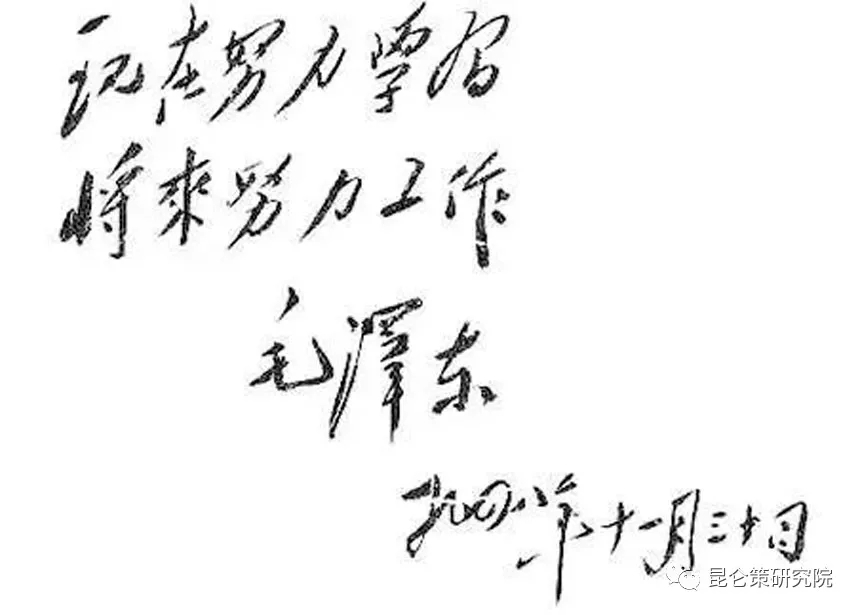 现在努力學習
將來努力工作
毛澤东
一九四八年十一月三十日
昆仑策研究院